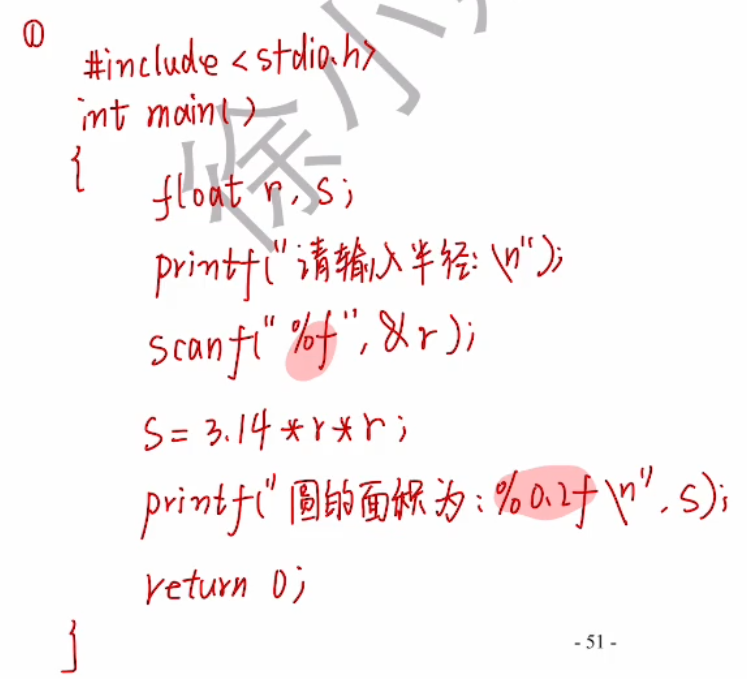 ①
#include <stdio.h>
int main()
{
float r, s;
printf("请输入半径:\n");
scanf("%f", &r);
s = 3.14*r*r;
printf("圆的面积为:%0.2f\n", s);
return 0;
}
- 51 -
徐小